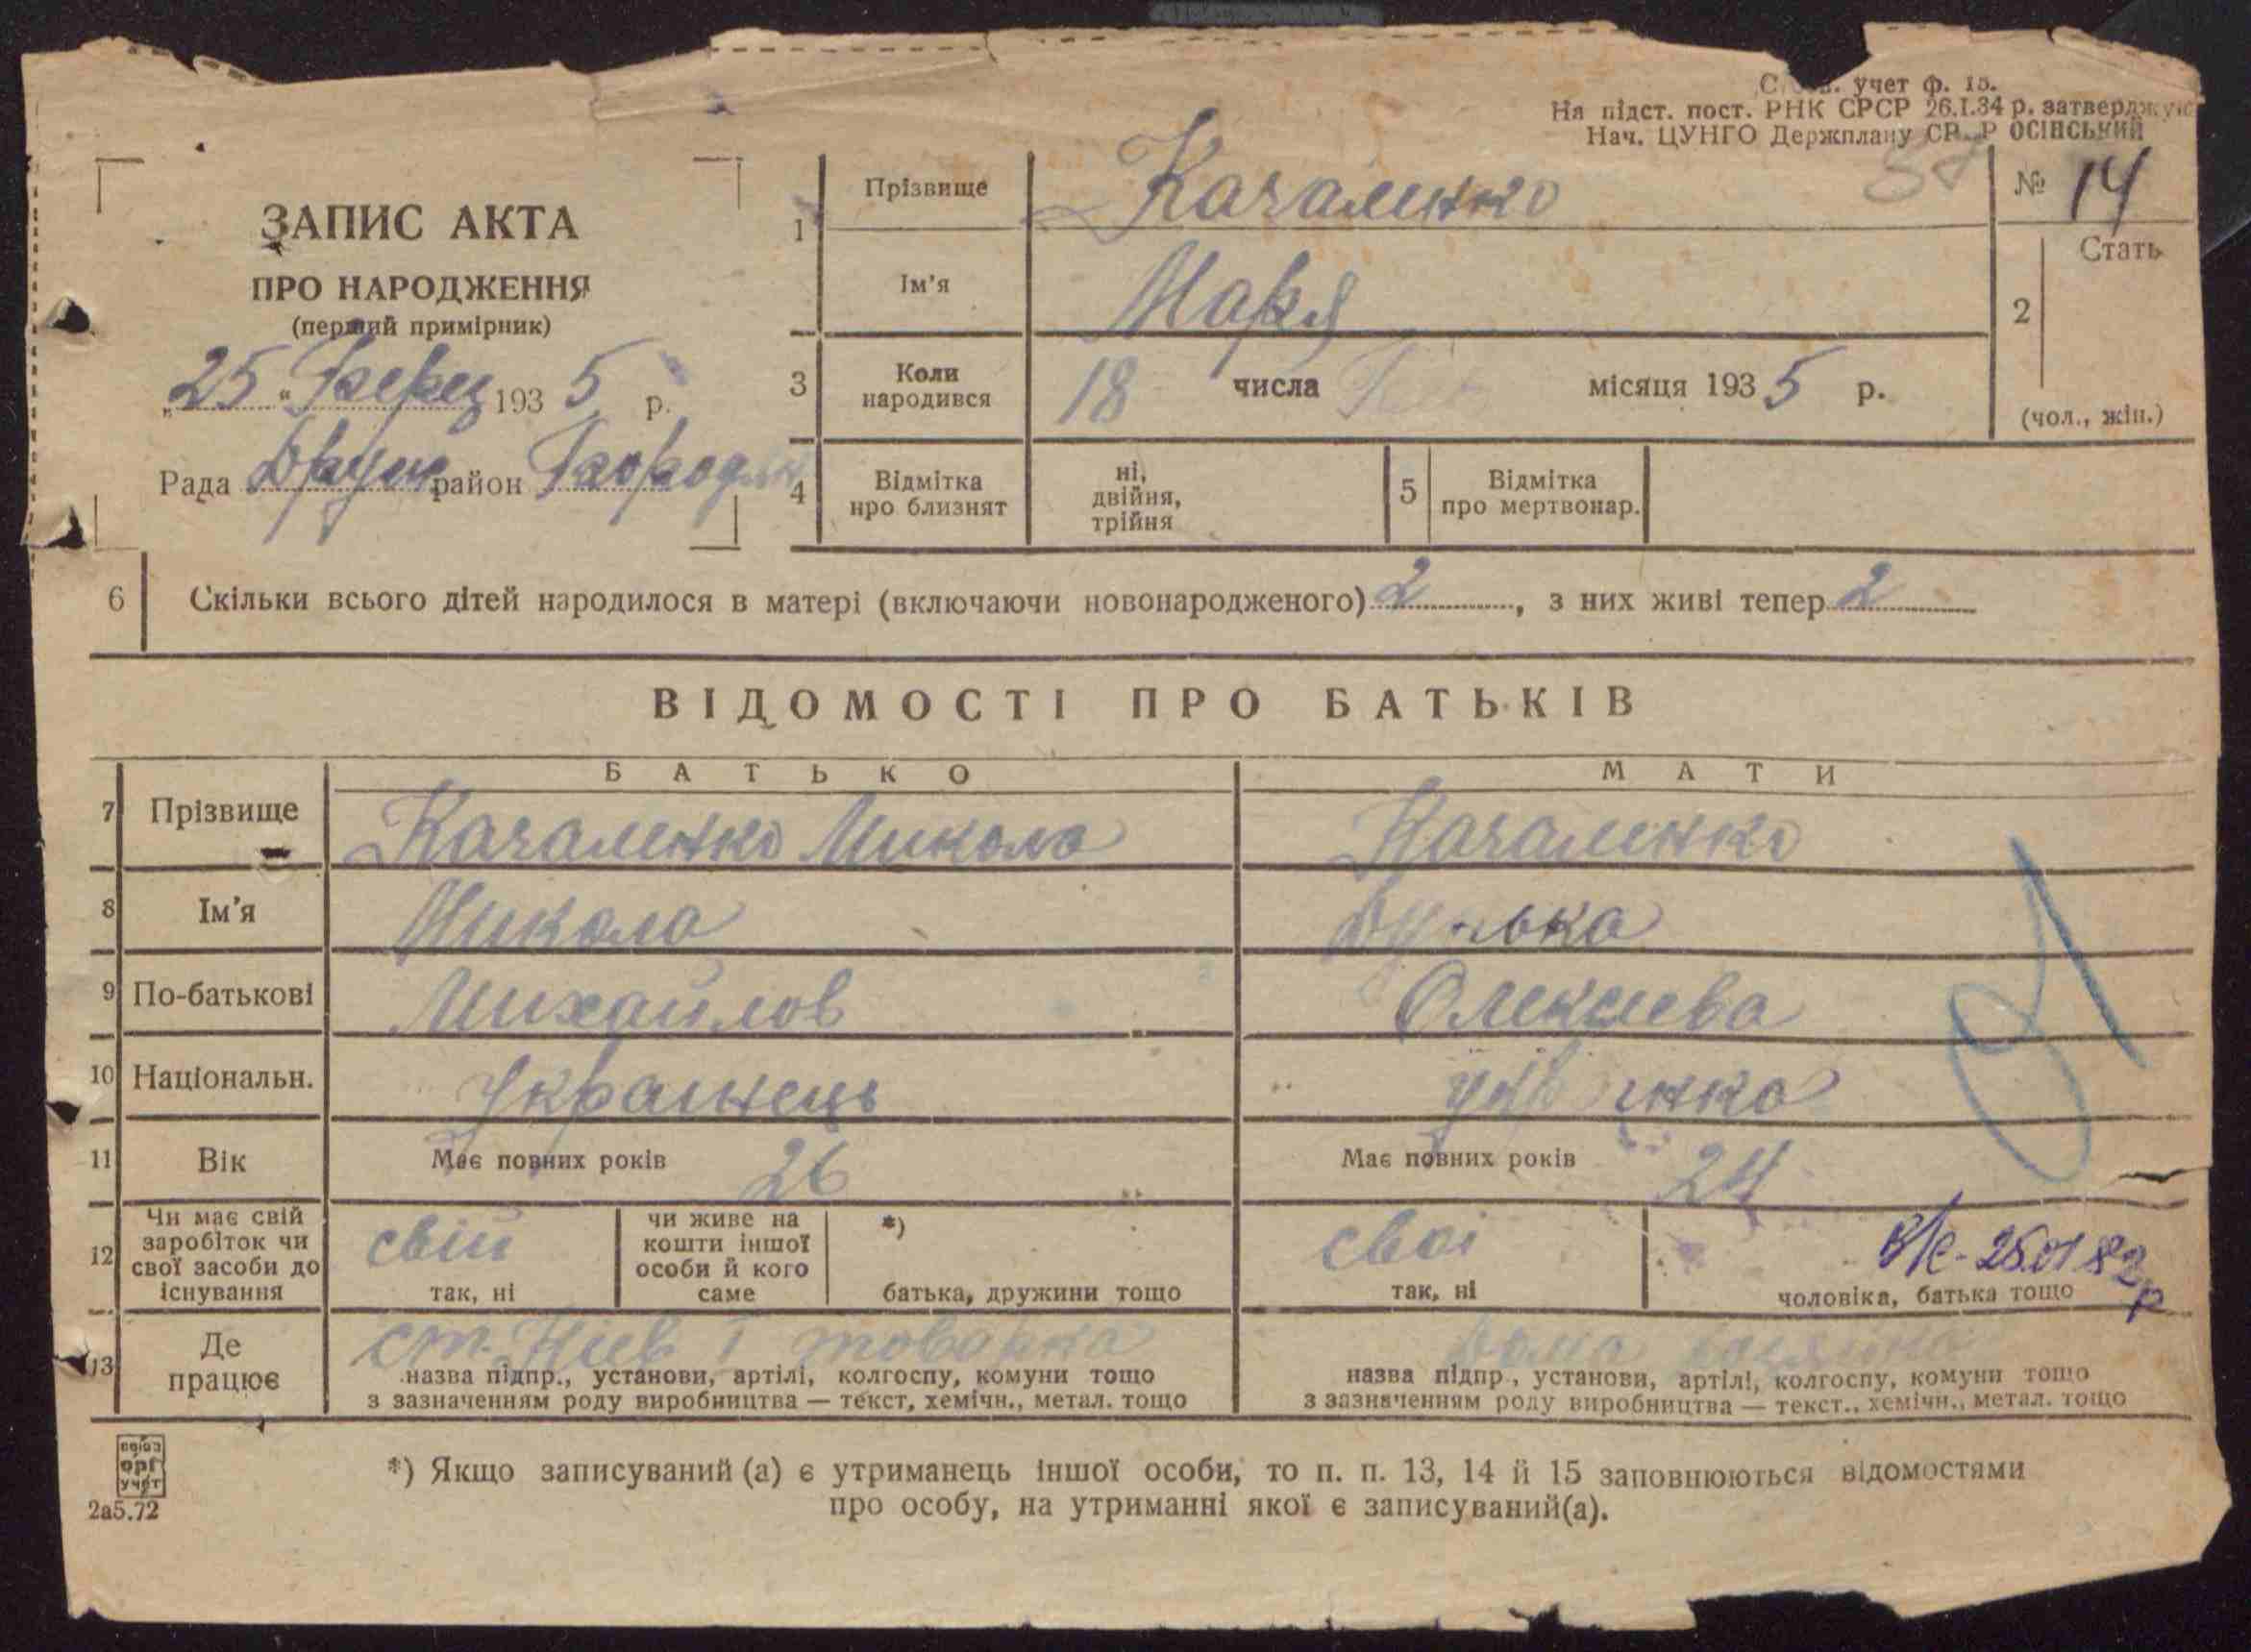 учет ф. 15.
На підст. пост. РНК СРСР 26.I.34 р. затверджую
Нач. ЦУНГО Держплану ОСІНСЬКИЙ
№ 14
ЗАПИС АКТА
ПРО НАРОДЖЕННЯ
(перший примірник)
„25“ 1935 р.
Рада район
1 Прізвище Качаленко
Ім'я Марія
2 Стать
(чол., жін.)
3 Коли народився 18 числа місяця 1935 р.
4 Відмітка нро близнят ні, двійня, трійня
5 Відмітка про мертвонар.
6 Скільки всього дітей народилося в матері (включаючи новонародженого) 2, з них живі тепер 2
ВІДОМОСТІ ПРО БАТЬКІВ
БАТЬКО МАТИ
7 Прізвище Качаленко Микола Качаленко
8 Ім'я Микола
9 По-батькові Михайлов Олексіева
10 Національн. Украінець
11 Вік Має повних років 26 Має повних років 24
12 Чи має свій заробіток чи свої засоби до існування свій так, ні чи живе на кошти іншої особи й кого саме *) батька, дружини тощо свої так, ні 25.01.82р чоловіка, батька тощо
13 Де працює ст. Киев I товарна
назва підпр., установи, артілі, колгоспу, комуни тощо
з зазначенням роду виробництва — текст, хемічн., метал. тощо
Дома
назва підпр., установи, артілі, колгоспу, комуни тощо
з зазначенням роду виробництва — текст., хемічн., метал. тощо
*) Якщо записуваний (а) є утриманець іншої особи, то п. п. 13, 14 й 15 заповнюються відомостями
про особу, на утриманні якої є записуваний(а).
союз
орг
учет
2а5.72